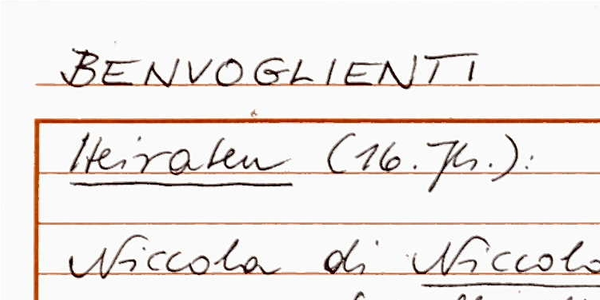 BENVOGLIENTI
Heiraten (16. Jh.):
Niccola di Niccolo